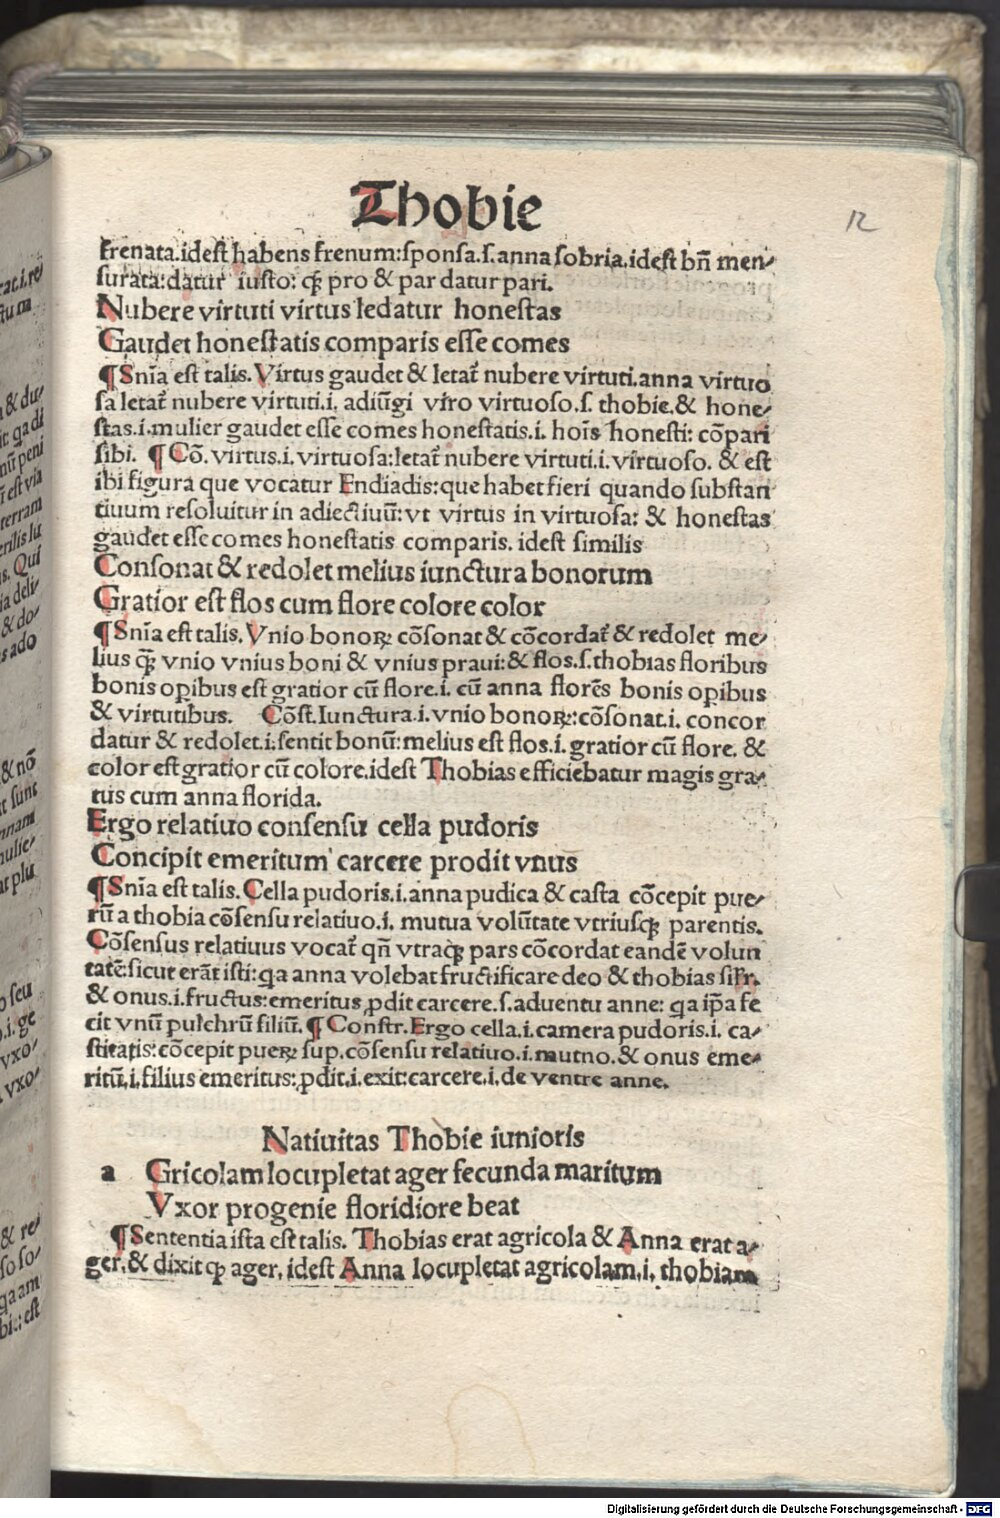 Thobie
12
frenata.idest habens frenum:sponsa.s.anna sobria.idest bn̄ men/
surata:datur iusto: ꝙ pro & par datur pari.
Nubere virtuti virtus letatur honestas
Gaudet honestatis comparis esse comes
¶ Snīa est talis. Virtus gaudet & letat᷑ nubere virtuti.anna virtuo
sa letat᷑ nubere virtuti.i. adiūgi viro virtuoso.s. thobie.& hone/
stas.i.mulier gaudet esse comes honestatis.i. hoīs honesti: cōpari
sibi. ¶ Cō. virtus.i. virtuosa:letat᷑ nubere virtuti.i. virtuoso. & est
ibi figura que vocatur Endiadis:que habet fieri quando substan
tiuum resoluitur in adiectiuū: vt virtus in virtuosa: & honestas
gaudet esse comes honestatis comparis. idest similis
Consonat & redolet melius iunctura bonorum
Gratior est flos cum flore colore color
¶ Snīa est talis. Vnio bonoꝝ cōsonat & cōcordat᷑ & redolet me/
lius ꝙ̄ vnio vnius boni & vnius praui:& flos.s.thobias floribus
bonis oꝑibus est gratior cū flore.i. cū anna florēs bonis oꝑibus
& virtutibus. Cōst.Iunctura.i.vnio bonoꝝ:cōsonat.i. concor
datur & redolet.i.sentit bonū:melius est flos.i.gratior cū flore. &
color est gratior cū colore.idest Thobias efficiebatur magis gra/
tus cum anna florida.
Ergo relatiuo consensu cella pudoris
Concipit emeritum carcere prodit vnus
¶ Snīa est talis. Cella pudoris.i.anna pudica & casta cōcepit pue/
rū a thobia cōsensu relatiuo.i. mutua volūtate vtriusꝙ parentis.
Cōsensus relatiuus vocat᷑ qn̄ vtraꝙ pars cōcordat eandē volun
tatē:sicut erāt isti:qa anna volebat fructificare deo & thobias silr.
& onus.i.fructus:emeritus ꝓdit carcere.s.aduentu anne: qa ip̄a fe
cit vnū pulchrū filiū. ¶ Constr. Ergo cella.i.camera pudoris.i. ca/
stitatis:cōcepit pueꝝ sup.cōsensu relatiuo.i.mutuo.& onus eme/
ritū.i.filius emeritus:ꝓdit.i.exit:carcere.i.de ventre anne.
Natiuitas Thobie iunioris
a Gricolam locupletat ager fecunda maritum
Vxor progenie floridiore beat
¶ Sententia ista est talis. Thobias erat agricola & Anna erat a/
ger.& dixit ꝙ ager, idest Anna locupletat agricolam.i. thobiam
Digitalisierung gefördert durch die Deutsche Forschungsgemeinschaft - DFG